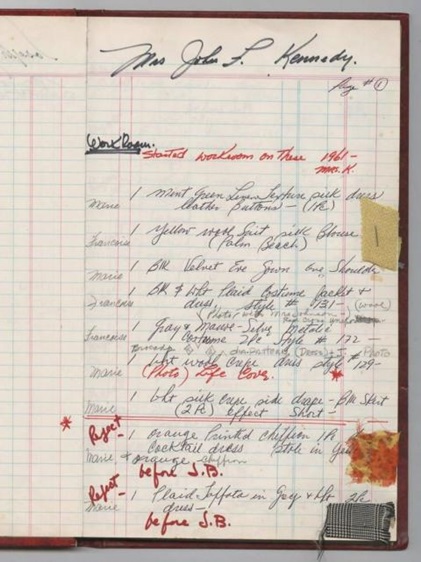 Mrs John F. Kennedy.
Page # 1
Work Room.
Started workroom on these 1961-
Mrs. K.
1 Mint Green Texture silk dress
Marie leather Buttons - (1Pc)
1 Yellow wool Suit silk Blouse
Francoise (Palm Beach)
1 Blk Velvet Eve Gown One Shoulder
Marie
1 Blk & Wht Plaid Costume Jacket &
Francoise dress style # 1731- (wool)
(Photo with
1 Gray & Mauve-Silver Metalic
Francoise Costume 2Pc Style # 172 -
PHOTO
1 Wht wool crepe dress style # 129-
Marie (Photo) Life Cover.
1 Wht silk crepe side drape - Blk Skirt
Marie (2Pc) Effect Short -
Reject 1 orange Printed Chiffon 1Pc
Cocktail dress Stole in
Marie & orange chiffon
before J.B.
Reject 1 Plaid Taffeta in Grey & Wht 2Pc
Marie dress-
before J.B.